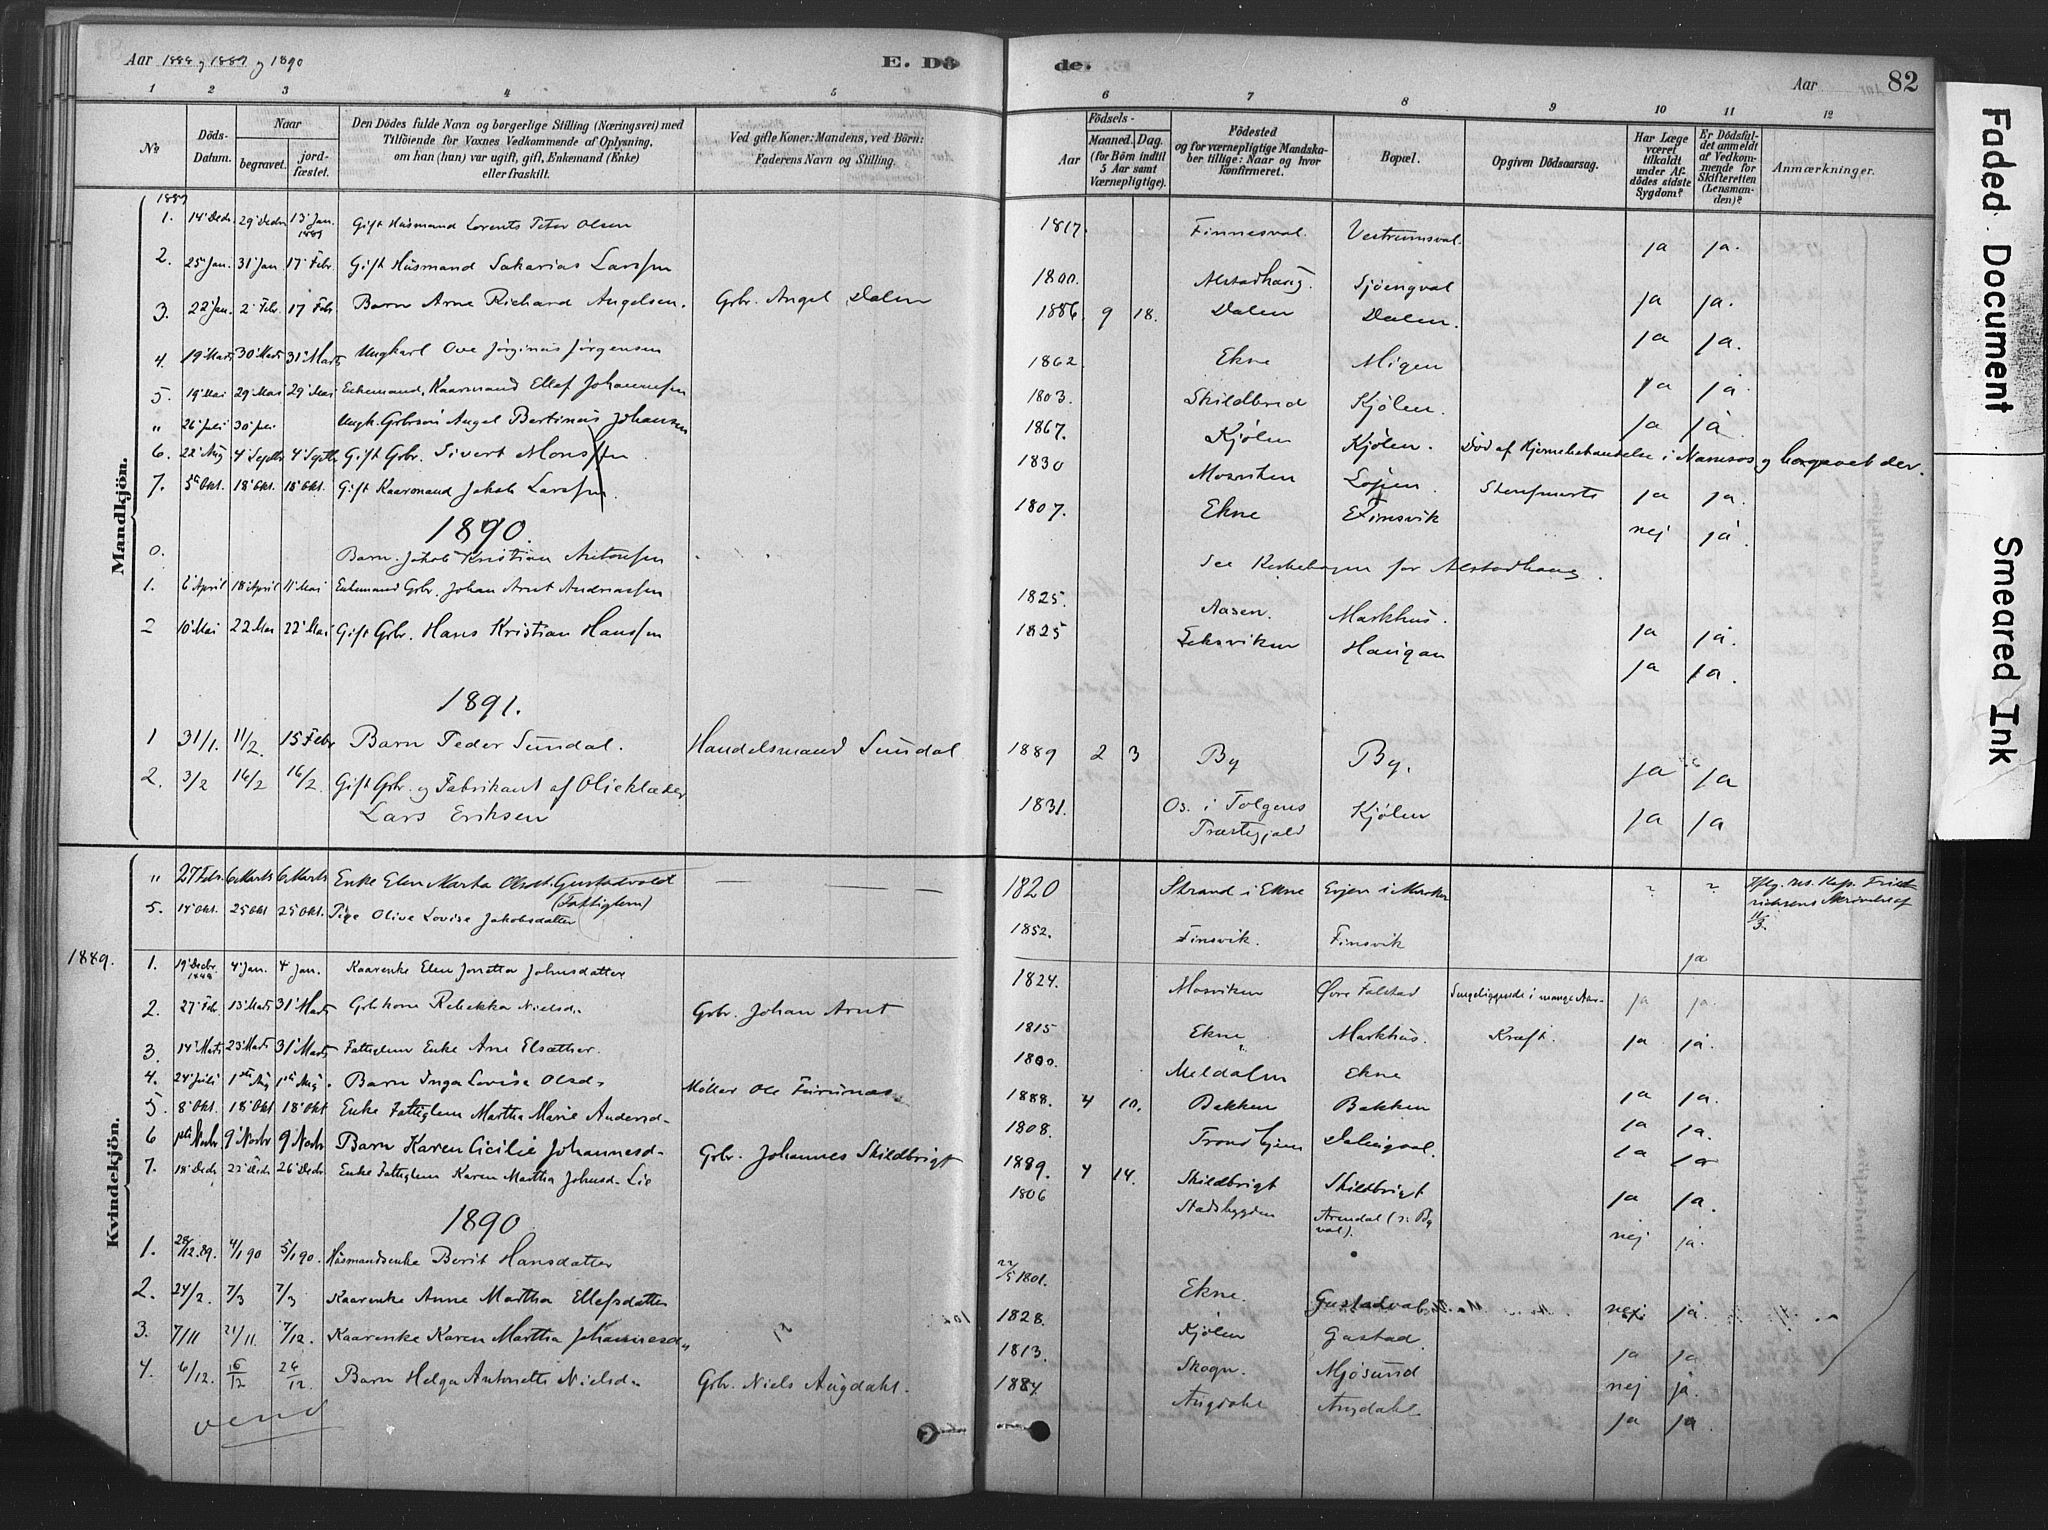 Aar 1888 og 1889 og 1890
E. Dö
de.
Aar
82
1 2 3 4 5
6 7 8 9 10 11 12
No
Döds-Datum.
Naar
begravet.
jord-fæstet.
Den Dödes fulde Navn og borgerlige Stilling (Næringsvei) med
Tilföiende for Voxnes Vedkommende af Oplysning,
om han (hun) var ugift, gift, Enkemand (Enke)
eller fraskilt.
Ved gifte Koner: Mandens, ved Börn:
Faderens Navn og Stilling.
Födsels-
Aar
Maaned. Dag.
(for Börn indtil
5 Aar samt
Værnepligtige).
Födested
og for værnepligtige Mandska-
ber tillige: Naar og hvor
konfirmeret.
Bopæl.
Opgiven Dödsaarsag.
Har Læge
været
tilkaldt
under Af-
dödes sidste
Sygdom?
Er Dödsfal-
det anmeldt
af Vedkom-
mende for
Skifteretten
(Lensman-
den)?
Anmærkninger.
Mandkjön.
1889
1. 14 Decbr. 29 Decbr 13 Jan. 1889 Gift Husmand Lorents Peter Olsen 1817. Finnesval. Vestrumsval. ja ja.
2. 25 Jan. 31 Jan 17 Febr. Gift Husmand Sakarias Larssen 1800. Alstadhaug. Sjöengval ja ja.
3. 22 Jan. 2 Febr. 17 Febr Barn Arne Richard Angelsen. Gbr. Angel Dalen 1886. 9 18. Dalen Dalen. ja ja.
4. 19 Marts 30 Marts 31 Marts Ungkarl Ove Jörginus Jörgensen 1862 Ekne Migen ja ja
5. 19 Mai 29 Mai 29 Mai Enkemand, Kaarmand Ellef Johannessen 1803. Skildbred Kjölen. ja ja
" 26 Juli 30 Juli Ungk. Gbrsön Angel Bertinus Johansen 1867. Kjölen Kjölen. Död af Hjernebetændelse i Namsos og begravet der.
6. 22 Aug 4 Septbr 4 Septbr Gift Gbr. Sivert Monssen 1830 Mosviken ja ja.
7. 5 Okt. 18 Okt. 18 Okt. Gift Kaarmand Jakob Larssen. 1807. Ekne Finsvik nej ja.
1890.
0. Barn Jakob Kristian Antonsen See Kirkebogen for Alstadhaug.
1. 6 April 18 April 11 Mai Enkemand Gbr. Johan Arnt Andreassen 1825. Aasen. Markhus. ja ja.
2 10 Mai 22 Mai 22 Mai Gift Gbr. Hans Kristian Hanssen 1825 Leksviken Haugan ja ja.
1891.
1 31/1. 11/2 15 Febr Barn Peder Sundal. Handelsmand Sundal 1889 2 3 By By. ja ja
2. 3/2 16/2 16/2. Gift Gbr. og Fabrikant af Olieklæder
Lars Eriksen 1831. Os. i Tolgens
Præstegjæld Kjölen ja ja
Kvindekjön.
" 27 Febr. 6 Marts 6 Marts Enke Elen Marta Olsdt. Gustadvald
(Fattiglem) 1820 Strand i Ekne " "
5. 14 Okt. 25 Okt 25 Okt. Pige Olive Lovise Jakobsdatter 1852. Finsvik. Finsvik ja
1889.
1. 19 Decbr. 1888 4 Jan. 4 Jan. Kaarenke Elen Jonetta Johnsdatter 1824. Mosviken Övre Falstad Sengeliggende i mange Aar ja ja.
2. 27 Febr. 13 Marts 31 Marts Gbrkone Rebekka Nielsd. Gbr. Johan Arnt 1815 Ekne Markhus. Kræft. ja ja.
3. 14 Marts 23 Marts 31 Marts Fattiglem Enke Ane Elsæther. 1800. Meldalen Ekne ja ja.
4. 24 Juli 1ste Aug 1ste Aug. Barn Inga Lovise Olsd. Möller Ole Furunæs 1888. 4 10. Bakken Bakken ja ja.
5. 8 Okt. 18 Okt 18 Okt Enke Fattiglem Martha Marie Andersd. 1808. Trondhjem ja ja
6 1ste Novbr. 9 Novbr 9 Novbr Barn Karen Cicilie Johannesd. Gbr. Johannes Skildbrigt 1889. 4 14. Skildbrigt Skildbrigt ja ja.
7. 18 Decbr 22 Decbr 26 Decbr Enke Fattiglem Karen Martha Johnsd. Lie 1806 Stadsbygden nej ja.
1890.
1. 28/12.89. 4/1 90 5/1 90. Husmandsenke Berit Hansdatter 22/5 1801. Ekne. Gustadval nej ja
2. 24/2. 7/3 7/3 Kaarenke Anne Martha Ellefsdatter 1828. Kjölen Gustad. ja ja
3. 7/11 21/11. 7/12. Kaarenke Karen Martha Johannesd. 1813. Skogn. Mjösund nej ja
4. 6/12. 16/12 26/12. Barn Helga Antonette Nielsd. Gbr. Niels Augdahl. 1884. Augdahl Augdahl ja ja
vend
Faded Document
Smeared Ink